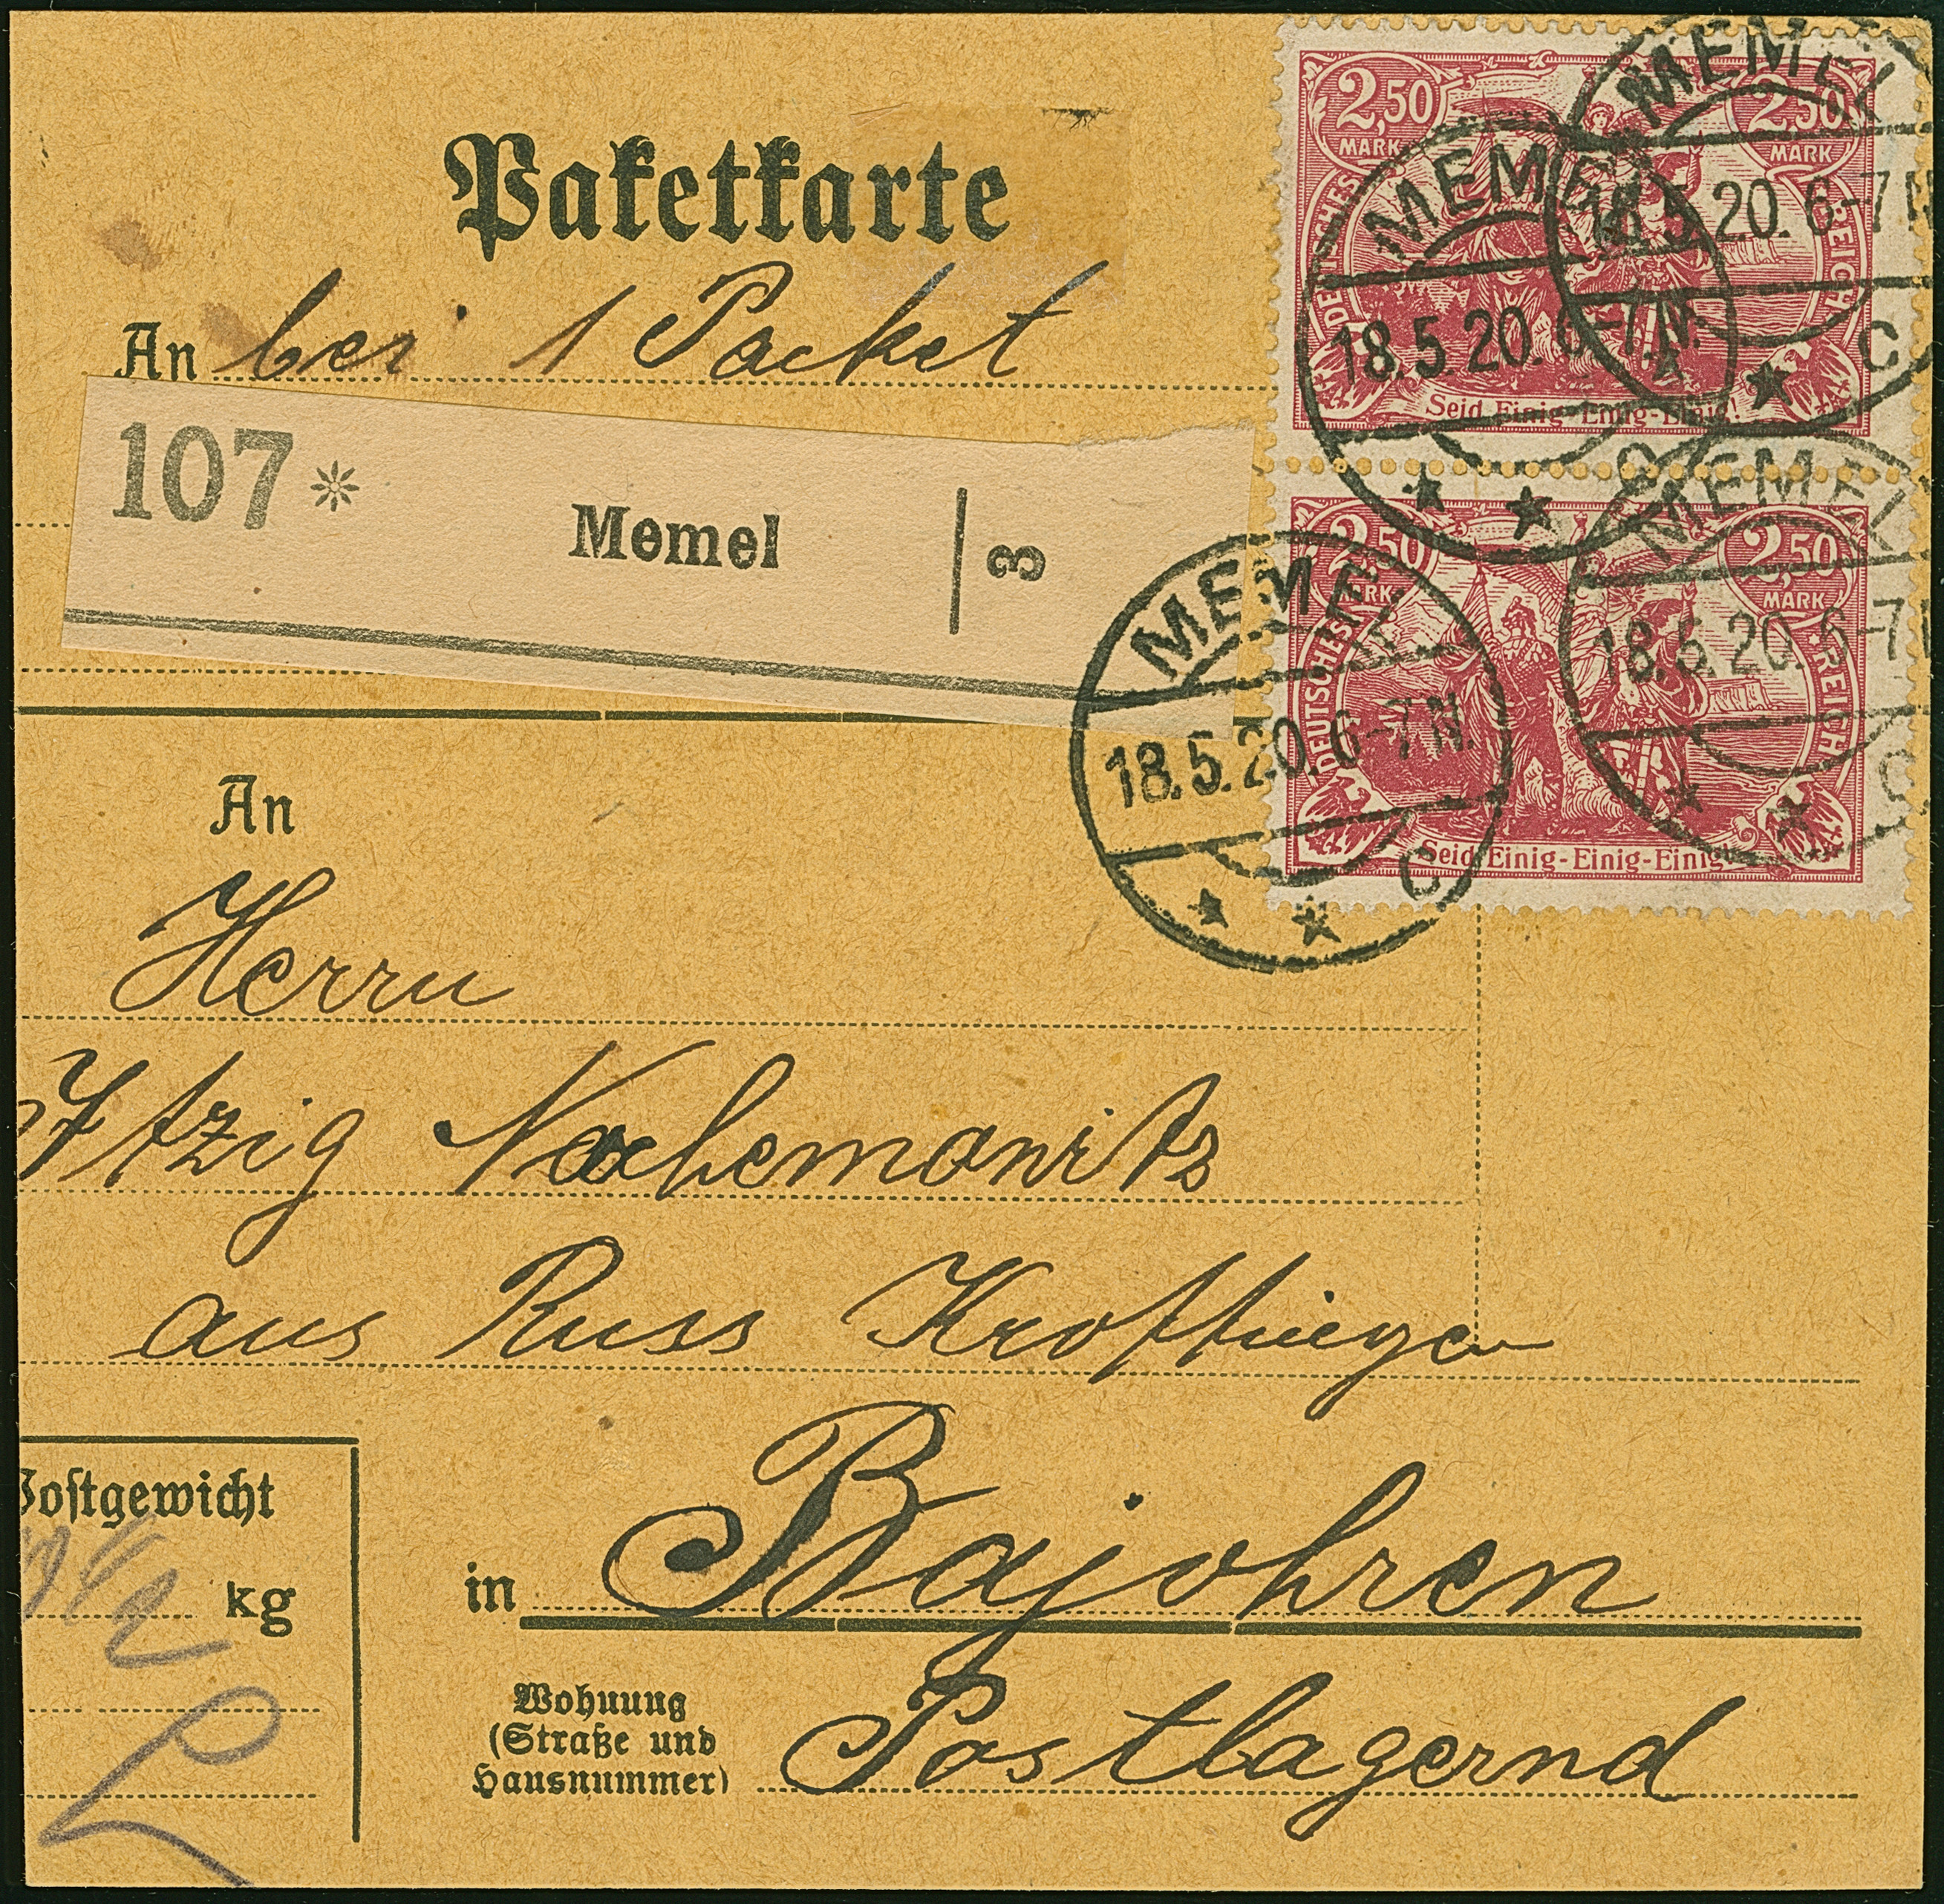 Paketkarte
An bei 1 Packet
107* Memel 3
2,50 MARK 2,50 MARK
DEUTSCHES REICH
Seid Einig-Einig-Einig!
MEMEL
18.5.20. 6-7 N.
* * C
MEMEL
18.5.20. 6-7 N.
* * C
2,50 MARK 2,50 MARK
DEUTSCHES REICH
Seid Einig-Einig-Einig!
MEMEL
18.5.20. 6-7 N.
* * C
MEMEL
18.5.20. 6-7 N.
* * C
An
Herrn
Itzig Nachemowitz
aus Russ Krottingen
Postgewicht
kg
in Bajohren
Wohnung
(Straße und
Hausnummer) Postlagernd